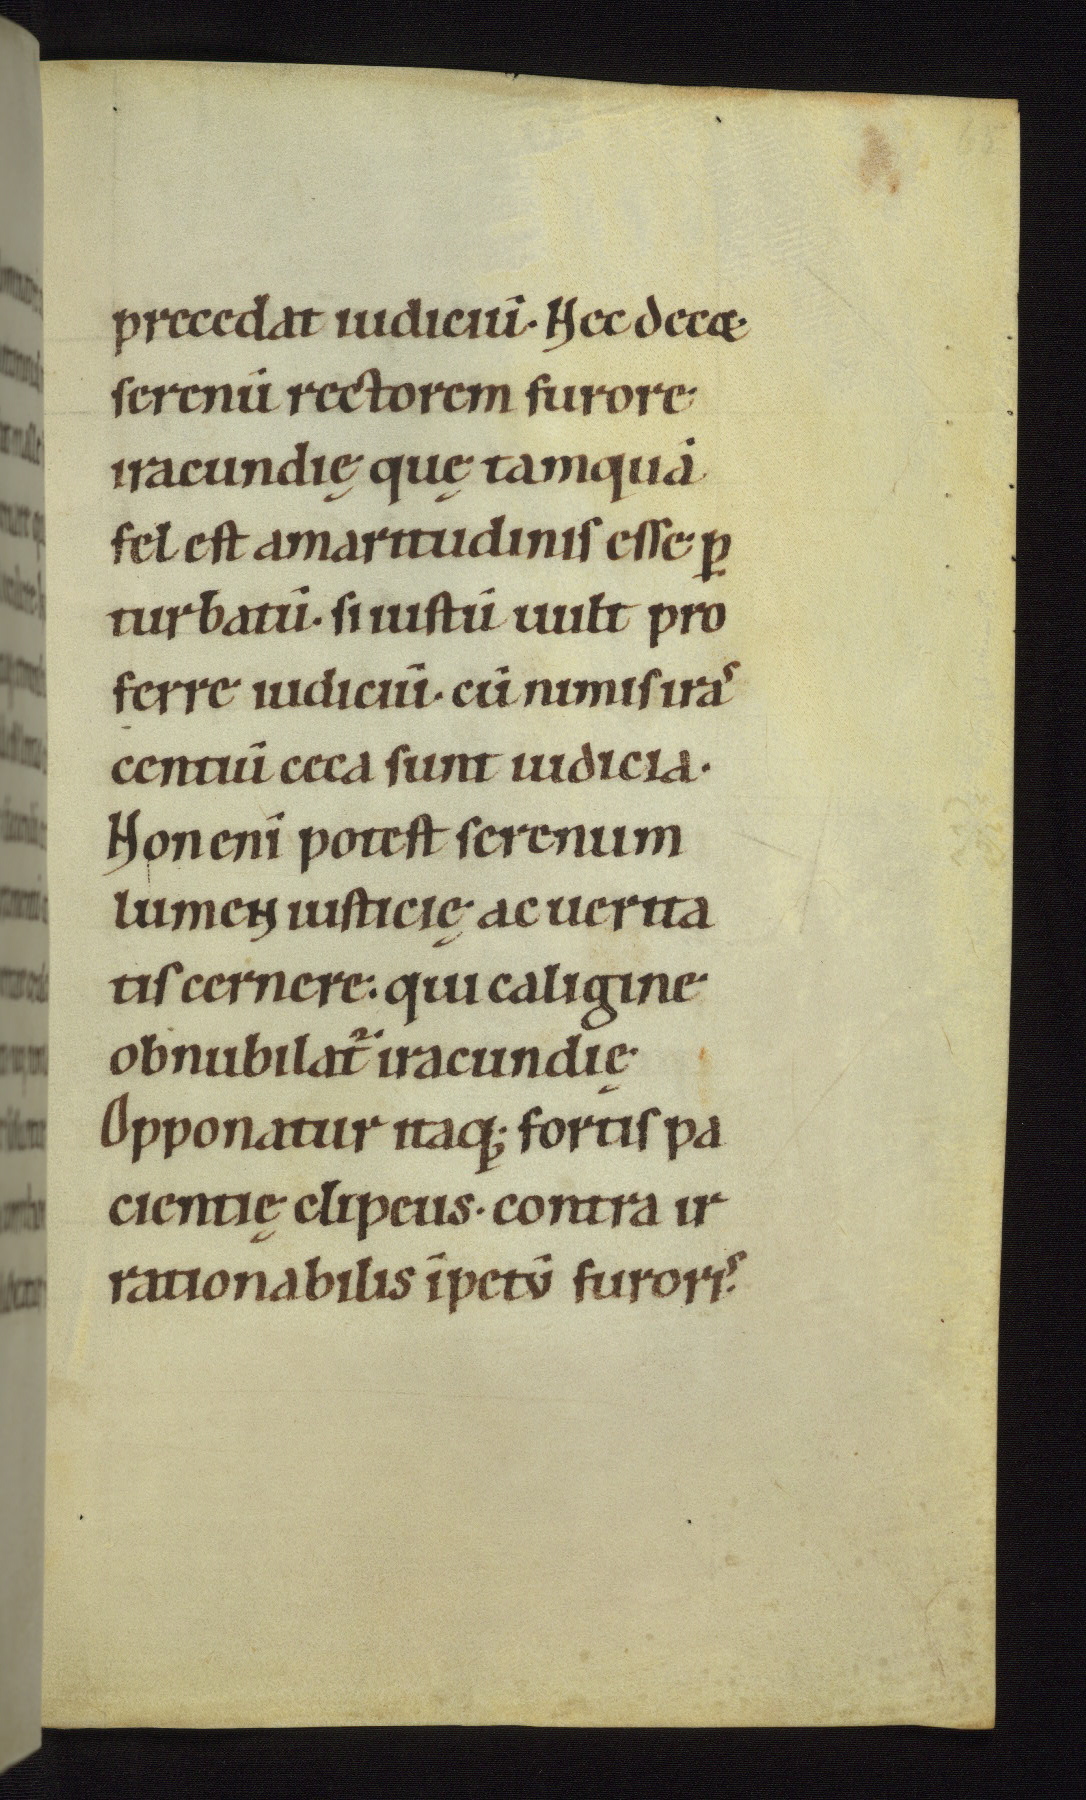 precedat iudiciū. Nec decæ
serenū rectorem furore
iracundię quę tamquā
fel est amaritudinis esse ꝑ
turbatū. si iustū uult pro
ferre iudiciū. cū nimis iraˢ
centiū ceca sunt iudicia.
Non enī potest serenum
lumen iusticię ac uerita
tis cernere: qui caligine
obnubilat᷑ iracundię
Opponatur itaq; fortis pa
cientię clipeus. contra ir
rationabilis īpetū furorıˢ.